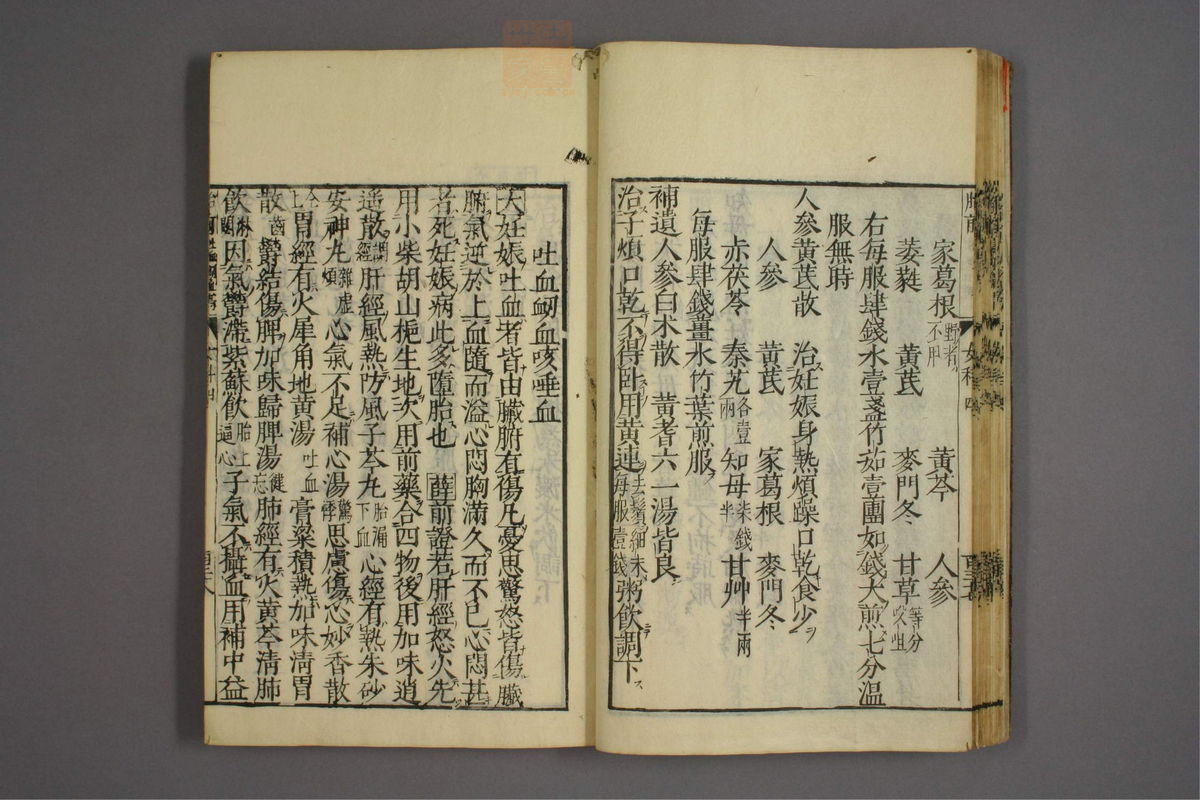 胎前 女科 四
家葛根野者不用 黄芩 人參
萎蕤 黄芪 麥門冬 甘草等分㕮咀
右每服肆錢水壹盞竹茹壹團如錢大煎七分溫
服無時
人參黄芪散 治妊娠身熱煩躁口乾食少
人參 黄芪 家葛根 麥門冬
赤茯苓 秦艽各壹兩 知母柒錢半 甘艸半兩
每服肆錢薑水竹葉煎服
補遺人參白朮散 黄耆六一湯皆良
治子煩口乾不得臥用黄連去鬚細末每服壹錢粥飲調下
吐血衂血咳唾血
大妊娠吐血者皆由臟腑有傷凡憂思驚怒皆傷臟
腑氣逆於上血隨而溢心悶胸滿久而不已心悶甚
者死妊娠病此多墮胎也 薛前證若肝經怒火先
用小柴胡山梔生地次用前藥合四物後用加味逍
遥散調經肝經風熱防風子芩丸胎漏下血心經有熱朱砂
安神丸雜虛煩心氣不足補心湯驚悸思慮傷心妙香散
胃經有火犀角地黄湯吐血膏粱積熱加味清胃
散齒鬱結傷脾加味歸脾湯健忘肺經有火黄芩清肺
飲淋閟因氣鬱滯紫蘇飲胎上逼心子氣不攝血用補中益